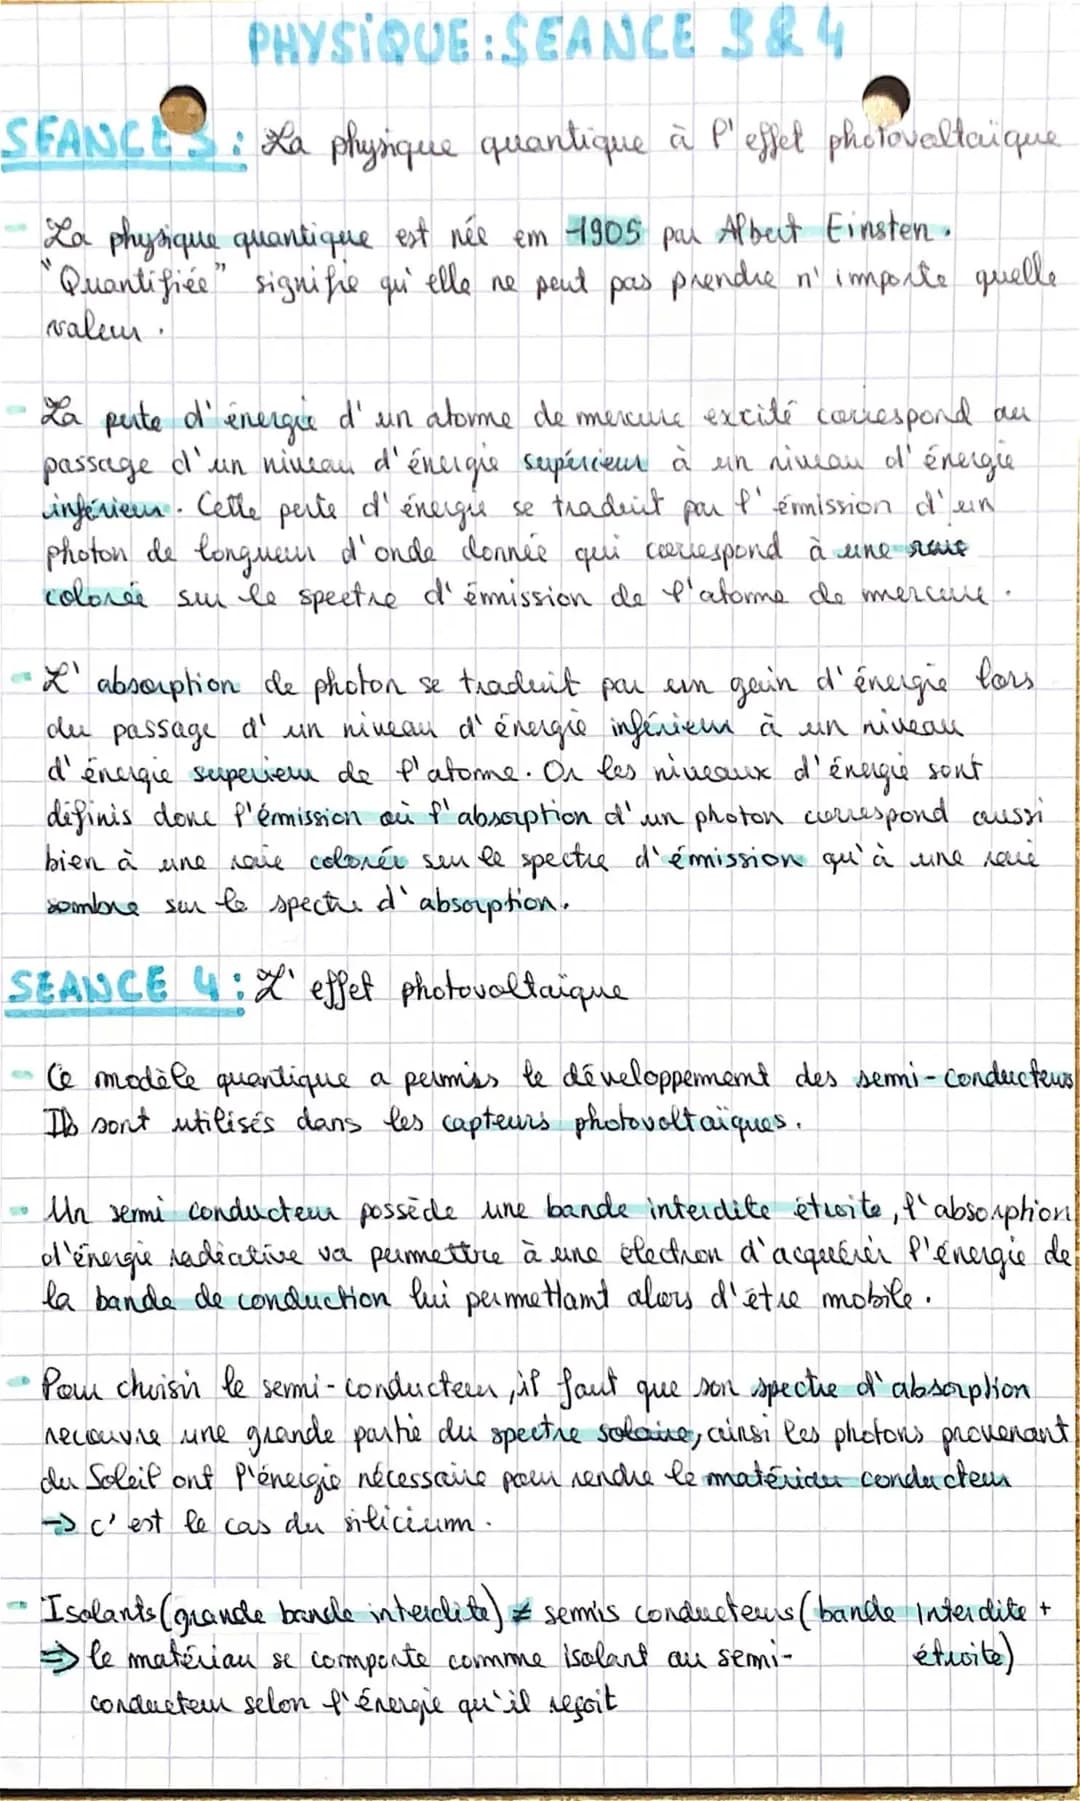 PHYSIQUE : SEANCE 3 & 4
SEANCE 3 : La physique quantique à l'effet photovaltaïque
- La physique quantique est née em 1905 par Albert Einsten.
"Quantifiée" signifie qu'elle ne peut pas prendre n'importe quelle
valeur.
- La perte d'énergie d'un atome de mercure excité correspond au
passage d'un niveau d'énergie supérieur à un niveau d'énergie
inférieur. Cette perte d'énergie se traduit par l'émission d'un
photon de longueur d'onde donnée qui correspond à une raie
colorée sur le spectre d'émission de l'atome de mercure.
- L'absorption de photon se traduit par un gain d'énergie lors
du passage d'un niveau d'énergie inférieur à un niveau
d'énergie superieur de l'atome. Or les niveaux d'énergie sont
définis donc l'émission où l'absorption d'un photon correspond aussi
bien à une raie colorée sur le spectre d'émission qu'à une raie
sombre sur le spectre d'absorption.
SEANCE 4 : L'effet photovoltaïque
- Ce modèle quantique a permis le développement des semi-conducteurs
Ils sont utilisés dans les capteurs photovoltaïques.
- Un semi conducteur possède une bande interdite étroite, l'absorption
d'énergie radiative va permettre à une électron d'acquérir l'énergie de
la bande de conduction lui permettant alors d'être mobile.
- Pour choisir le semi-conducteur, il faut que son spectre d'absorption
recouvre une grande partie du spectre solaire, ainsi les photons provenant
du Soleil ont l'énergie nécessaire pour rendre le matériau conducteur
→ c'est le cas du silicium.
- Isolants (grande bande interdite) ≠ semis conducteurs (bande interdite +
étroite)
⇒ le matériau se comporte comme isolant au semi-
conducteur selon l'énergie qu'il reçoit